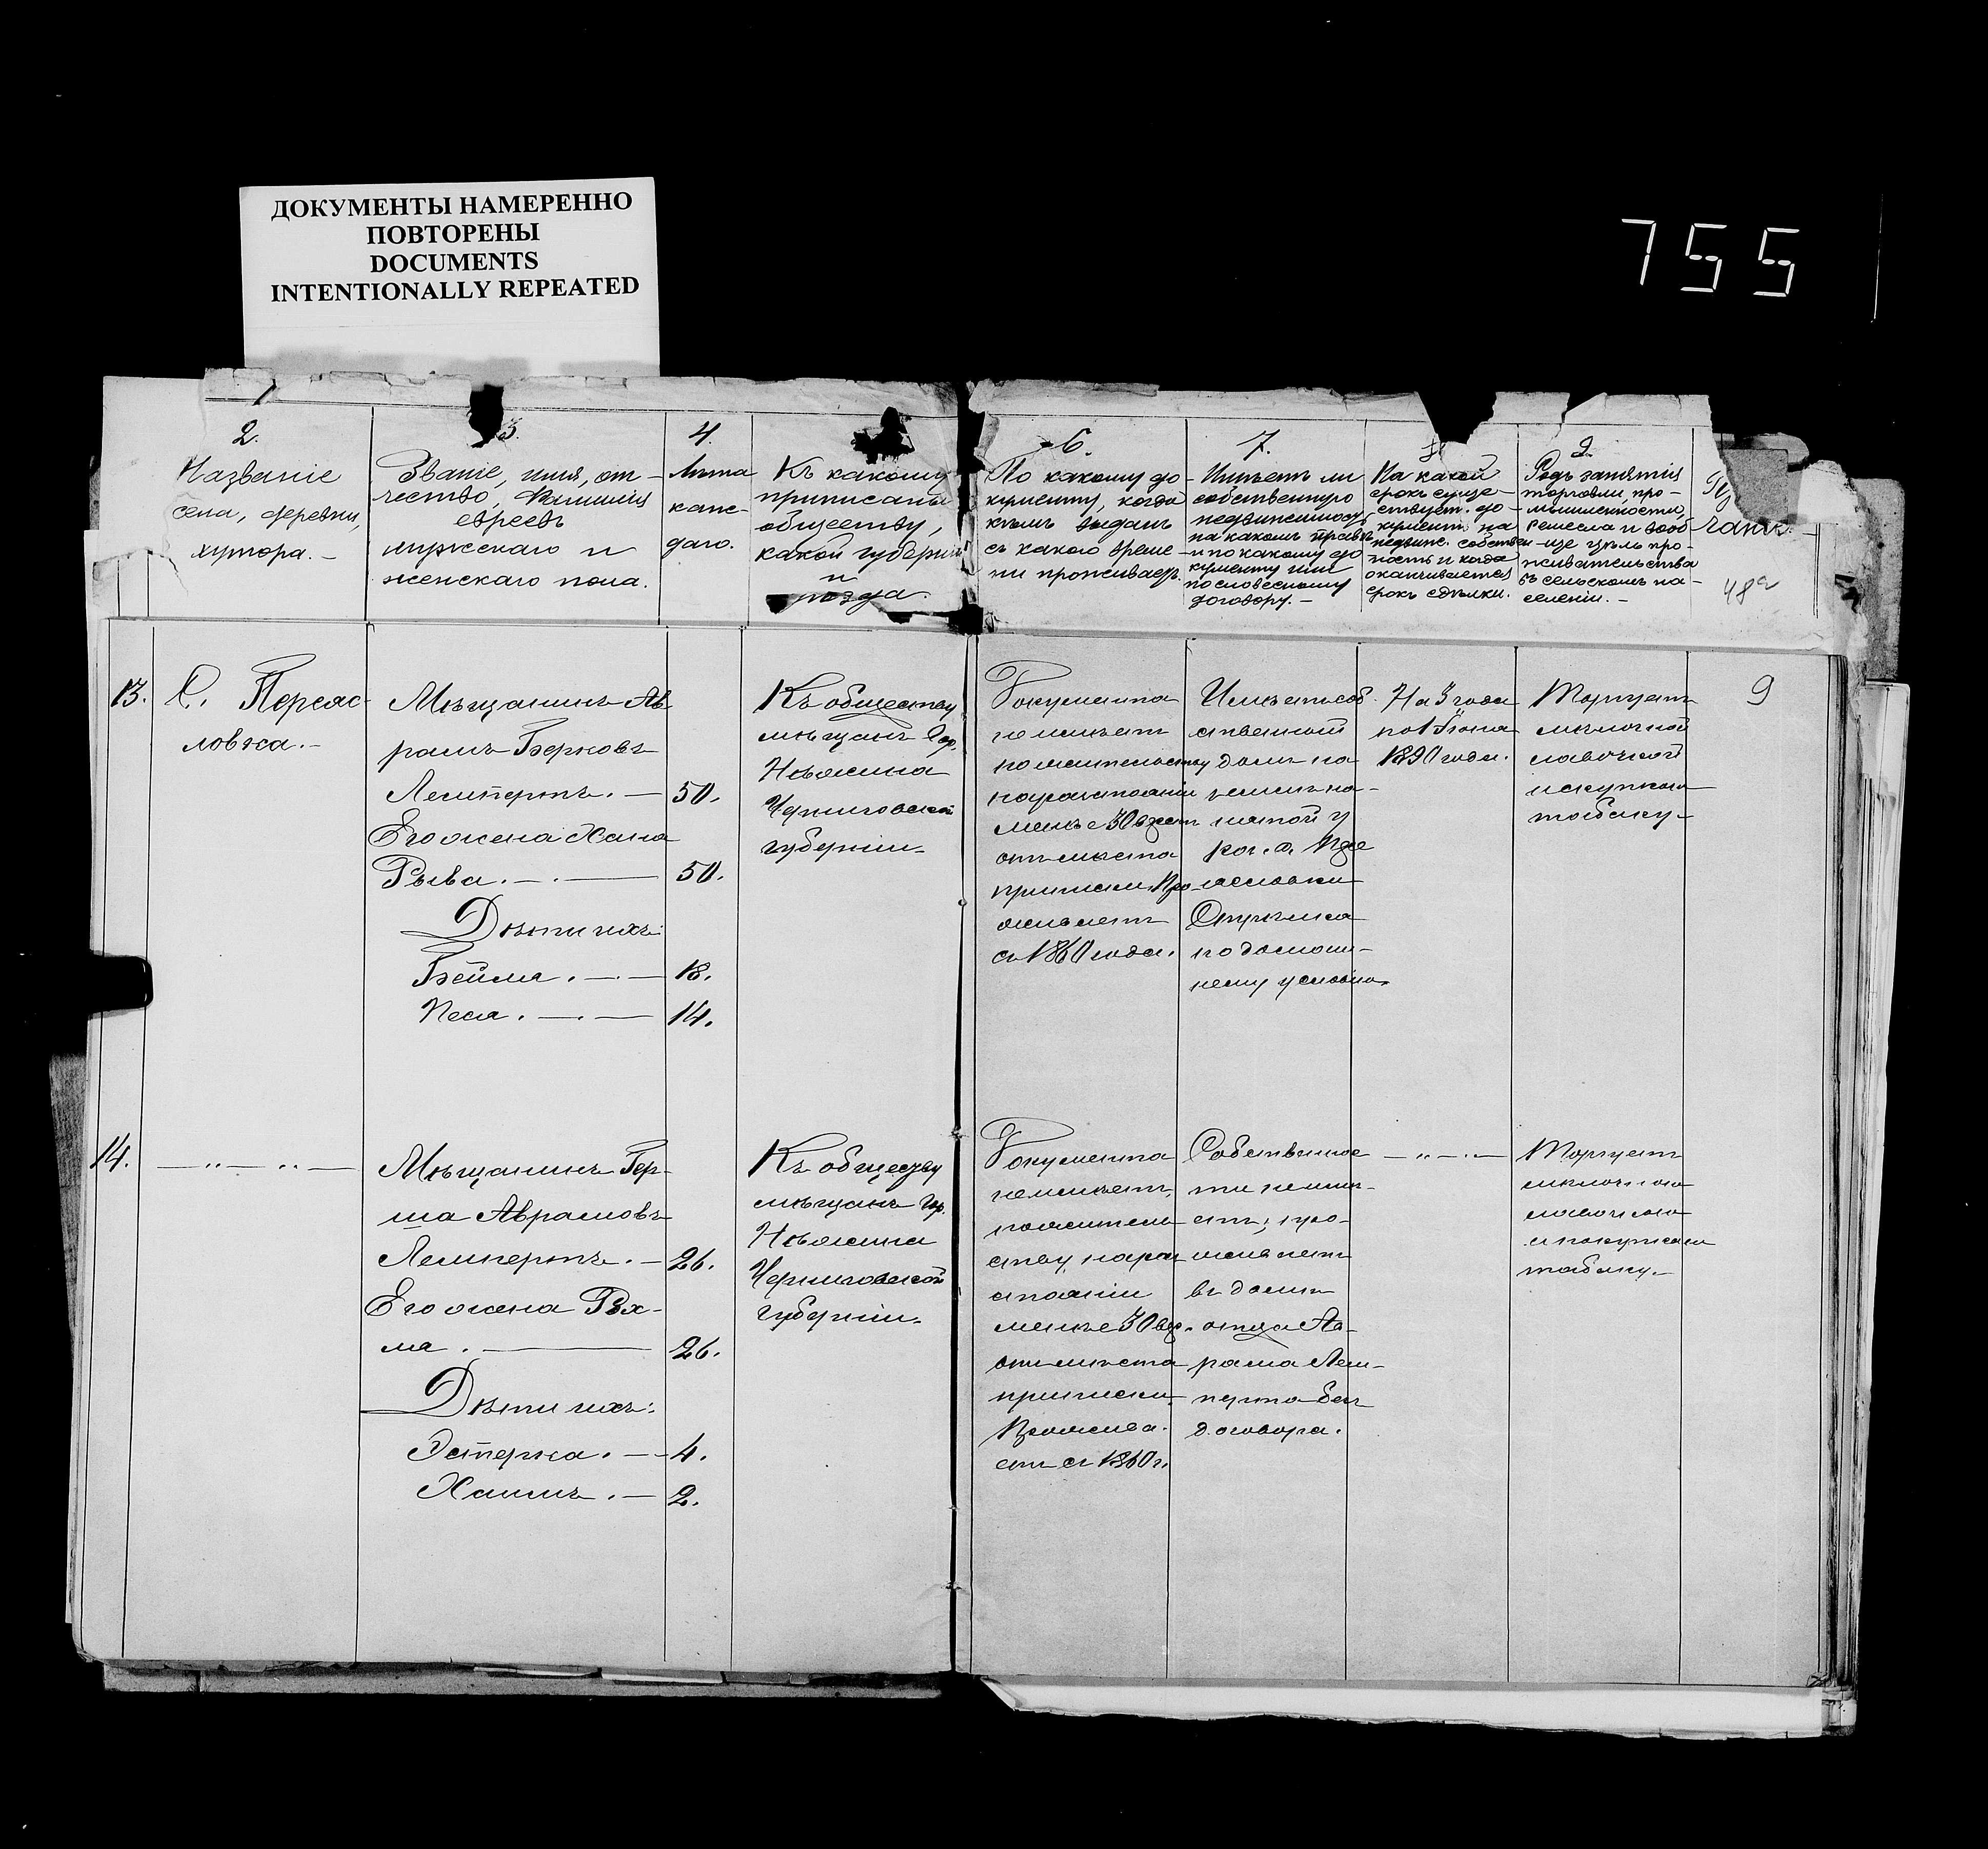 ДОКУМЕНТЫ НАМЕРЕННО
ПОВТОРЕНЫ
DOCUMENTS
INTENTIONALLY REPEATED
755
2.
Названіе
села, деревни,
хутора. —
3.
Званіе, имя, от-
чество, Фамилія
евреевъ
мужскаго и
женскаго пола.
4.
Лѣта
каж-
даго.
Къ какому
приписаны
обществу,
какой губерніи
и
уѣзда.
6.
По какому до-
кументу, когда
кѣмъ выдан
съ какого време-
ни проживаетъ.
7.
Имѣетъ ли
собственную
недвижимост
на какомъ правѣ
и по какому до
кументу или
по словесному
договору. —
На какой
срокъ суще-
ствует. до-
кументъ на
недвиж. собствен
ность и когда
оканчивается
срокъ сдѣлки.
9.
Родъ занятія
торговли, про-
мышленности,
ремесла и вооб-
ще цѣль про-
живательства
въ сельскомъ на-
селеніи. —
48а
13.
С. Переяс-
ловка. —
Мѣщанинъ Ав
рамъ Берковъ
Лемпертъ. — 50.
Его жена Хана
Рыва. — . — 50.
Дѣти ихъ:
Бейла. — . — 18.
Песя. — . — 14.
Къ обществу
мѣщанъ гор.
Нѣжина
Черниговской
губерніи.
Документа
не имѣетъ
по жительству
на разстояніи
менѣе 30 верст
отъ мѣста
приписки. Про
живаетъ
съ 1860 года.
Имѣетъ соб
ственный
домъ на
землѣ на-
нятой у
коз. д. Пере
ясловки
по домаш-
нему условію.
На 3 года
по 1 Іюня
1890 года.
Торгует
мѣлочной
лавочкой
и скупкою
табаку —
9
14.
— „ — „ —
Мѣщанинъ Гер-
ша Аврамовъ
Лемпертъ. — 26.
Его жена Рох-
ма . — 26.
Дѣти ихъ:
Эстерка. — 4.
Хаимъ. — 2.
Къ обществу
мѣщанъ гор.
Нѣжина
Черниговской
губерніи.
Документа
не имѣетъ,
по жительс
ству на раз
стояніи
менѣе 30 вер.
отъ мѣста
приписки.
Прожива.
етъ съ 1860 г.
Собственнос
ти не имѣ-
етъ; про-
живаетъ
въ домѣ
отца Ав-
рама Лем-
перта без
договора.
— „ — . —
Торгует
мѣлочною
лавочкою
и покупкою
табаку. —